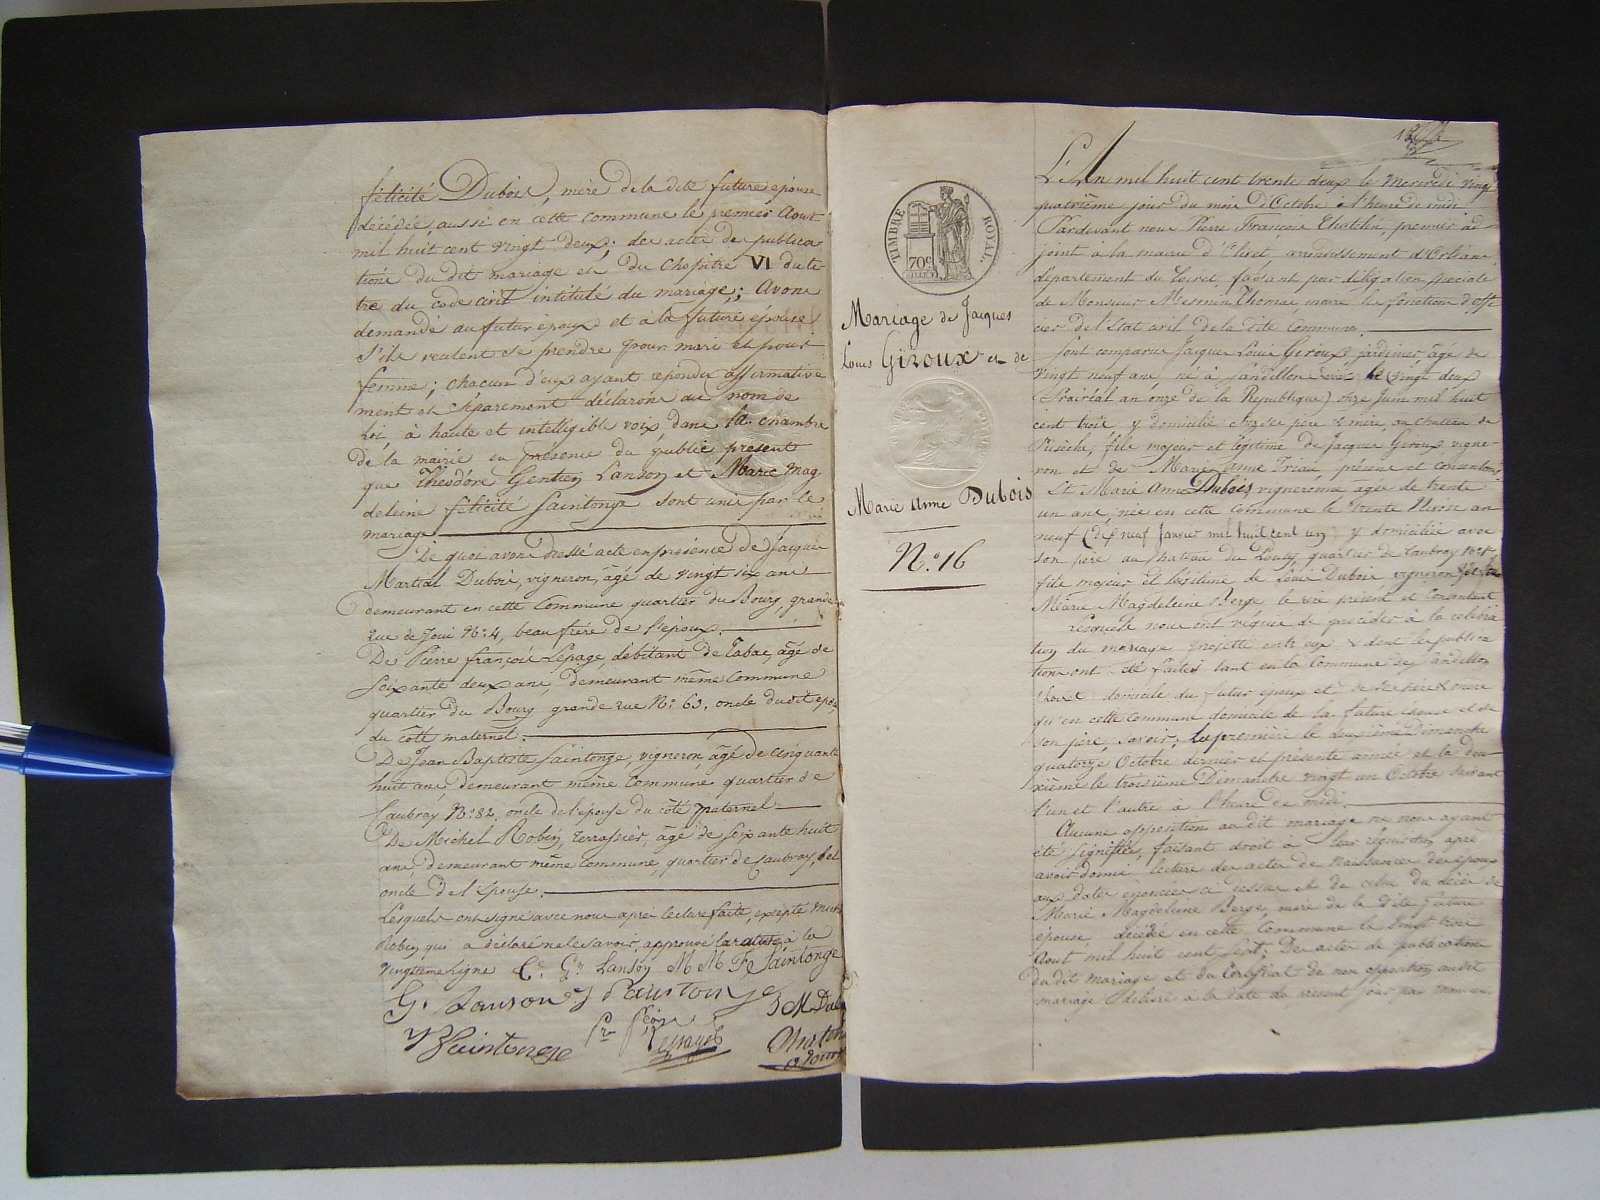 félicité Dubois, mère de la dite future épouse
décédée, aussi en cette commune le premier Aout
mil huit cent vingt deux; des actes de publica
tions du dit mariage et du Chapitre VI du ti
tre du code civil intitulé du mariage; Avons
demandé au futur époux et à la future épouse
s'ils veulent se prendre pour mari et pour
femme; chacun d'eux ayant répondu affirmative
ment et séparement déclarons au nom de
Loi, à haute et intelligible voix, dans la chambre
de la mairie en présence du public présent
que Théodore Gentien Lanson et Marie Mag
deleine félicité Saintonge sont unis par le
mariage.
De quoi avons dressé acte en présence de Jacques
Martial Dubois, vigneron, âgé de vingt six ans
demeurant en cette Commune quartier du Bourg, grande
rue de Joui No. 4, beau frère de l'époux.
De Pierre françois Lepage, débitant de Tabac, âgé de
soixante deux ans, demeurant même Commune
quartier du Bourg grande rue No. 63, oncle du dit époux
du coté maternel.
De Jean Baptiste Saintonge, vigneron, âgé de cinquante
huit ans demeurant même Commune quartier de
Caubray No. 82, oncle de l'épouse du coté paternel.
De Michel Robin, terrassier, âgé de soixante huit
ans, demeurant même Commune, quartier de Caubray, bel
oncle de l'épouse.
Lesquels ont signé avec nous après lecture faite, excepté Michel
Robin qui a déclaré ne le savoir, approuvé la rature à la
vingtième ligne T. G. Lanson M M Fe Saintonge
G. Lanson Saintonge J M Dubois
Saintonge Pre fçois Lepage
adjoint
TIMBRE ROYAL
70c
Mariage de Jacques
Louis Giroux et de
Marie Anne Dubois
No. 16
L'An mil huit cent trente deux le Mercredi vingt
quatrième jour du mois d'Octobre à l'heure de midi
Pardevant nous Pierre François Chatelin, premier ad
joint à la mairie d'Olivet, arrondissement d'Orléans
département du Loiret, faisant par délégation spéciale
de Monsieur Mesmin Thomas, maire les fonctions d'offi
cier de l'Etat civil de la dite Commune.
Sont comparus Jacques Louis Giroux jardinier, âgé de
vingt neuf ans né à Sandillon le vingt deux
Prairial an onze de la République) onze Juin mil huit
cent trois, y domicilié chez ses père & mère, au chateau de
fils majeur et légitime de Jacques Giroux vigne-
ron et de Marie Anne Triau présens et consentans
Et Marie Anne Dubois vigneronne âgée de trente
un ans née en cette Commune le trente Nivose an
neuf (dix neuf Janvier mil huit cent un) y domiciliée avec
son père au chateau du quartier de Caubray No.
fille majeure et légitime de Louis Dubois vigneron et de feue
Marie Magdeleine Berge le père présent et consentant
Lesquels nous ont requis de procéder à la célébra
tion du mariage projetté entr'eux & dont les publica
tions ont été faites tant en la Commune de Sandillon
domicile du futur époux et de ses père & mère
qu'en cette Commune domicile de la future épouse et de
son père; savoir; la première le deuxième Dimanche
quatorze Octobre dernier et présente année et la deu
xième le troisième Dimanche vingt un Octobre suivant
l'un et l'autre à l'heure de midi.
Aucune opposition au dit mariage ne nous ayant
été signifiée, faisant droit à leur réquisition, après
avoir donné lecture des actes de Naissances des époux
aux dates énoncées ci dessus et de celui du décès de
Marie Magdeleine Berge, mère de la dite future
épouse, décédée en cette Commune le vingt trois
Aout mil huit cent sept; Des actes de publications
du dit mariage et du Certificat de non opposition audit
mariage délivré à la date du présent jour par Monsieur